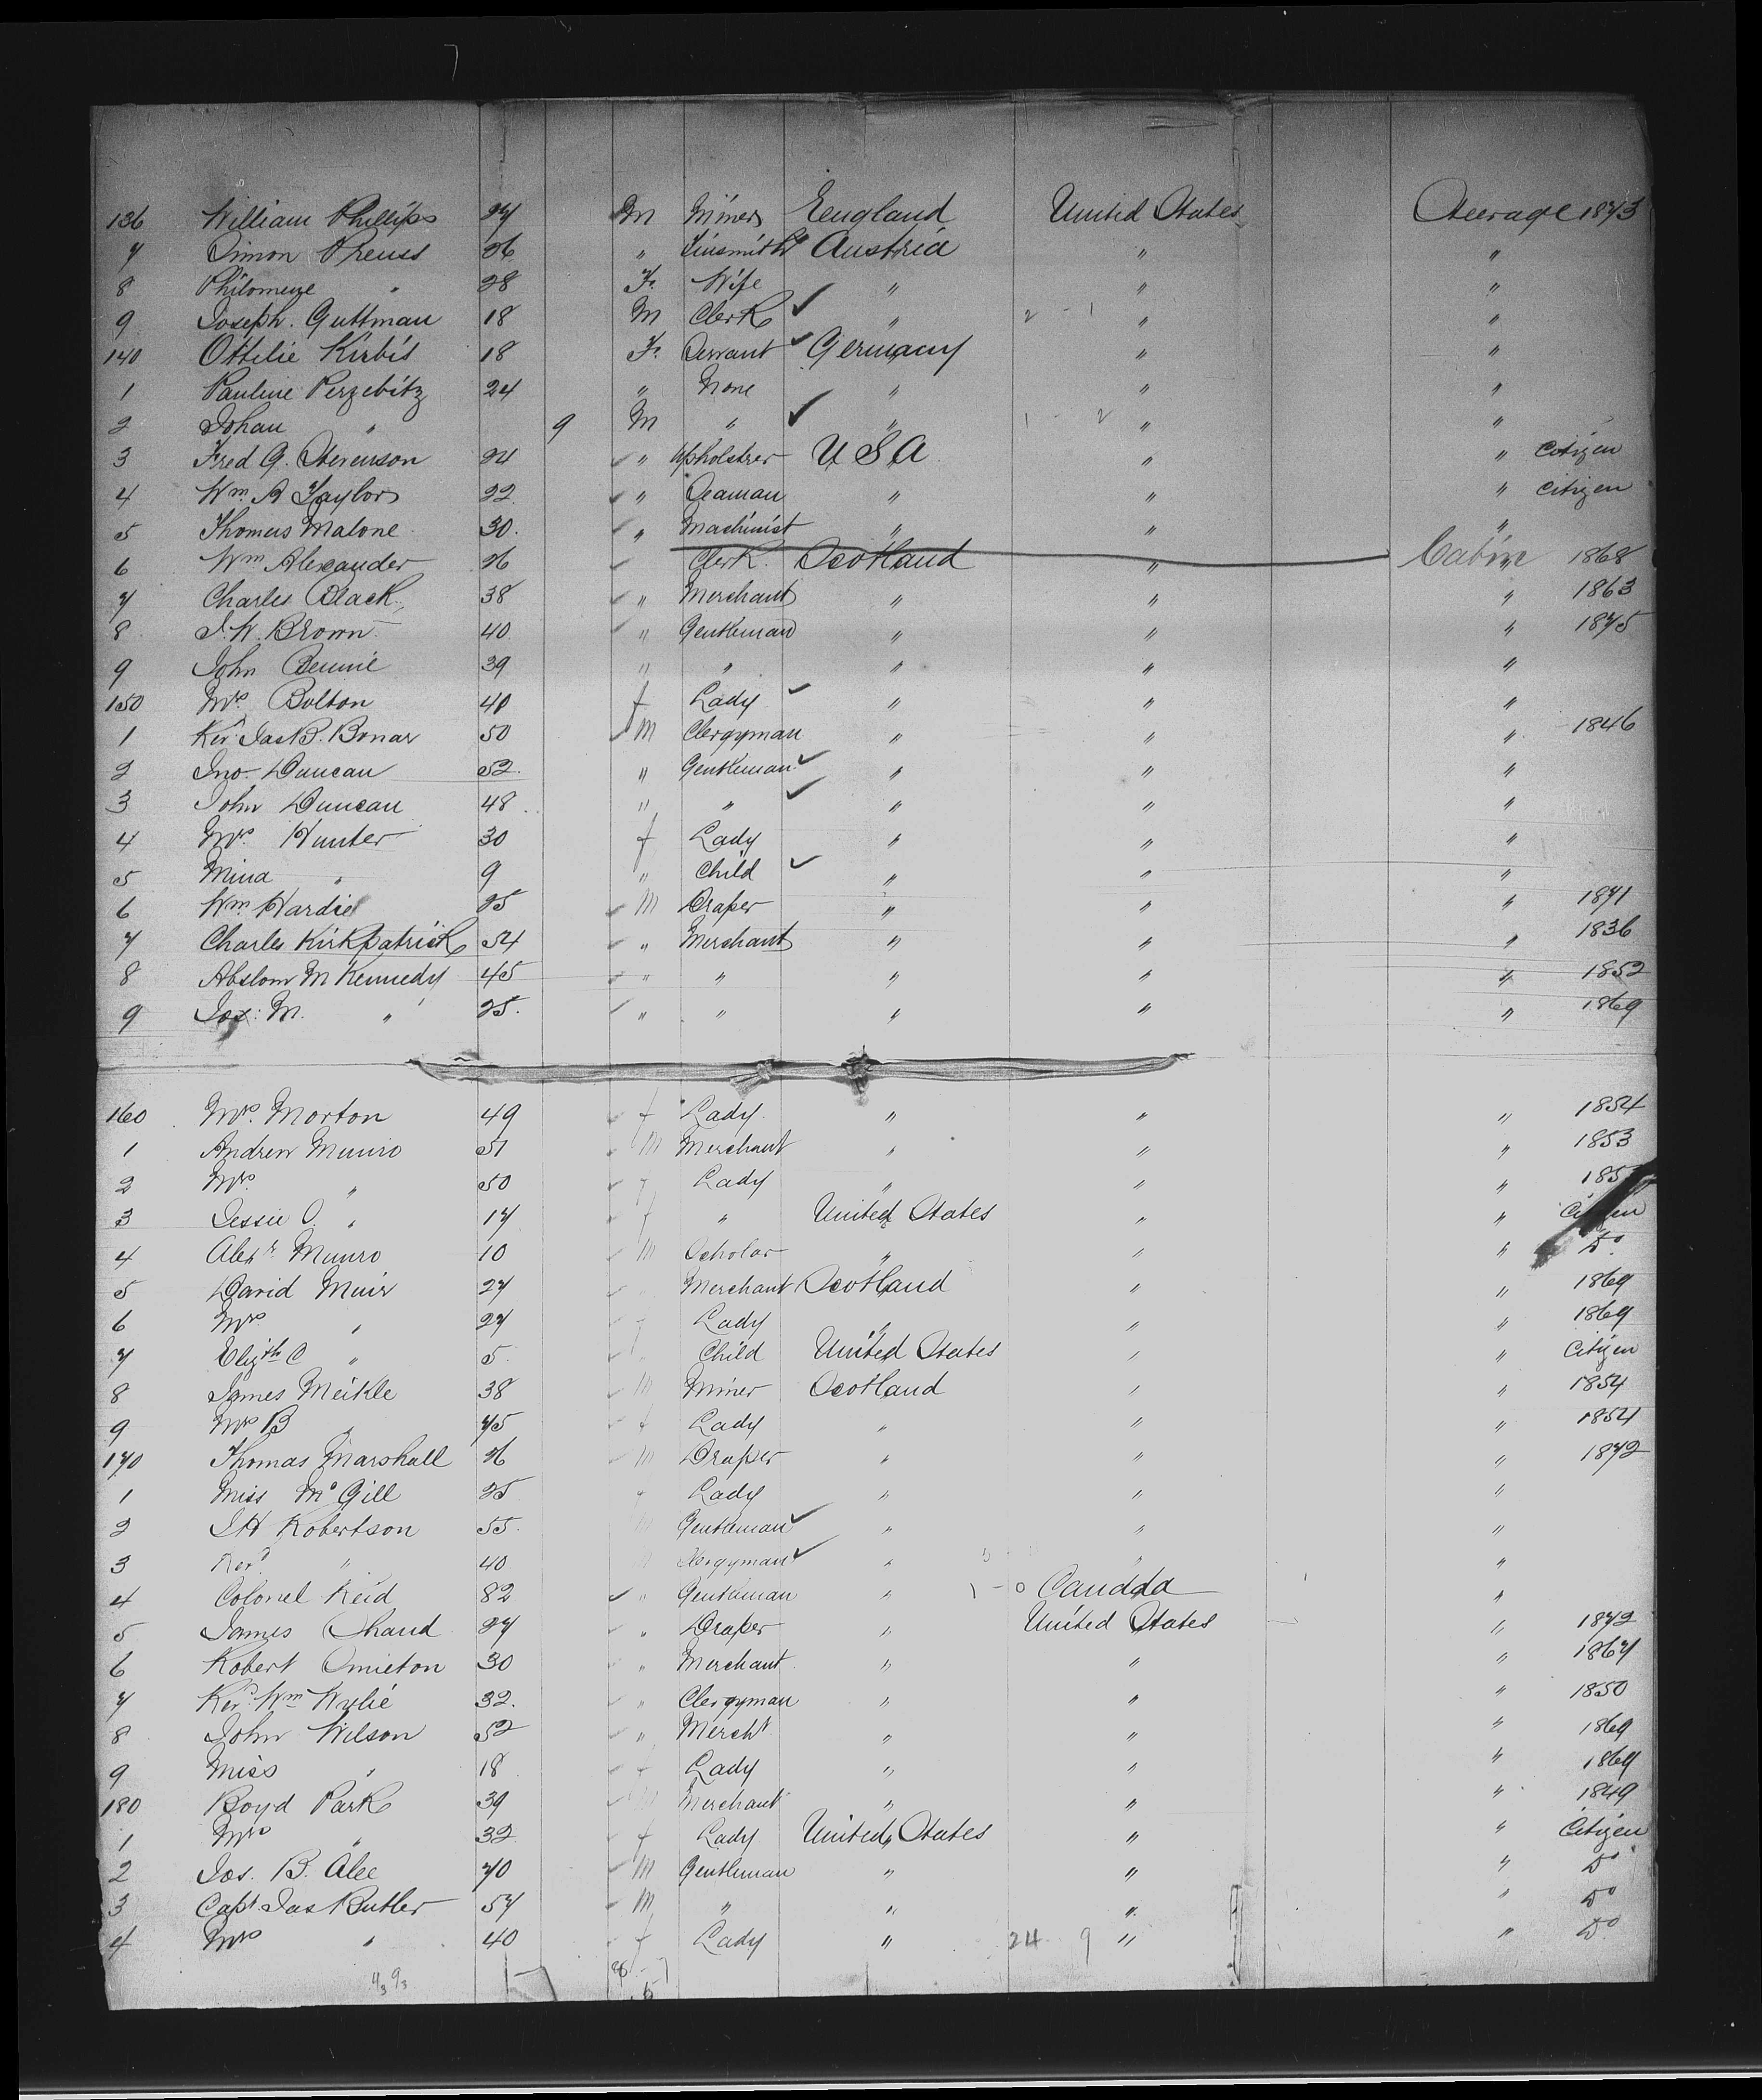 136 William Phillips 27 M Miner England United States Steerage 1873
7 Simon Preuss 26 " Tinsmith Austria " "
8 Philomene " 28 F. Wife " " "
9 Joseph. Guttman 18 M Clerk " 2 - 1 " "
140 Ottilie Kirbis 18 F. Servant Germany " "
1 Pauline Perzebitz 24 " None " " "
2 Johan " 9 M " " 1 - 2 " "
3 Fred G. Stevenson 24 " Upholstrer U S A " " Citizen
4 Wm. A Taylor 22 " Seaman " " " Citizen
5 Thomas Malone 30. " Machinist " " "
6 Wm Alexander 26 Clerk. Scotland " Cabin 1868
7 Charles Black 38 " Merchant " " " 1863
8 J. W. Brown 40 " Gentleman " " " 1875
9 John Bennie 39 " " " " "
150 Mrs Bolton 40 f Lady " " "
1 Revd. Jas B. Bonar 50 M Clergyman " " " 1846
2 Jno- Duncan 52. " Gentleman " " "
3 John Duncan 48 " " " " "
4 Mrs. Hunter 30 f Lady " " "
5 Mina " 9 " Child " " "
6 Wm Hardie 25 M Draper " " " 1871
7 Charles Kirkpatrick 54 " Merchant " " " 1836
8 Abslom M Kennedy 45 " " " " " 1852
9 Jas: M. " 25. " " " " " 1869
160 Mrs. Morton 49 f Lady " " " 1854
1 Andrew Munro 51 M Merchant " " " 1853
2 Mrs. " 50 f Lady " " " 185
3 Jessie O. " 17 f " United States " " Citizen
4 Alexr. Munro 10 M Scholar " " " Do.
5 David Muir 27 Merchant Scotland " " 1869
6 Mrs " 27 f Lady " " " 1869
7 Elizth C " 5. Child United States " " Citizen
8 James Meikle 38 M Miner Scotland " " 1854
9 Mrs B " 75 f Lady " " " 1854
170 Thomas Marshall 26 M Draper " " " 1872
1 Miss McGill 25 f Lady " " "
2 J H Robertson 55. M Gentleman " " "
3 Revd. " 40 Clergyman " " "
4 Colonel Reid 82 " Gentleman " 1 - 0 Canada "
5 James Shand 27 " Draper " United States " 1872
6 Robert Smieton 30 " Merchant " " " 1867
7 Revd. Wm Wylie 32. " Clergyman " " " 1850
8 John Wilson 52 " Mercht " " " 1869
9 Miss " 18 f Lady " " " 1869
180 Boyd Park 39 M Merchant " " " 1849
1 Mrs " 32 f Lady United States " " Citizen
2 Jas. B. Alee 70 M Gentleman " " " Do
3 Capt Jas Butler 57 M " " " " Do
4 Mrs " 40 f Lady " 24 9 " " Do